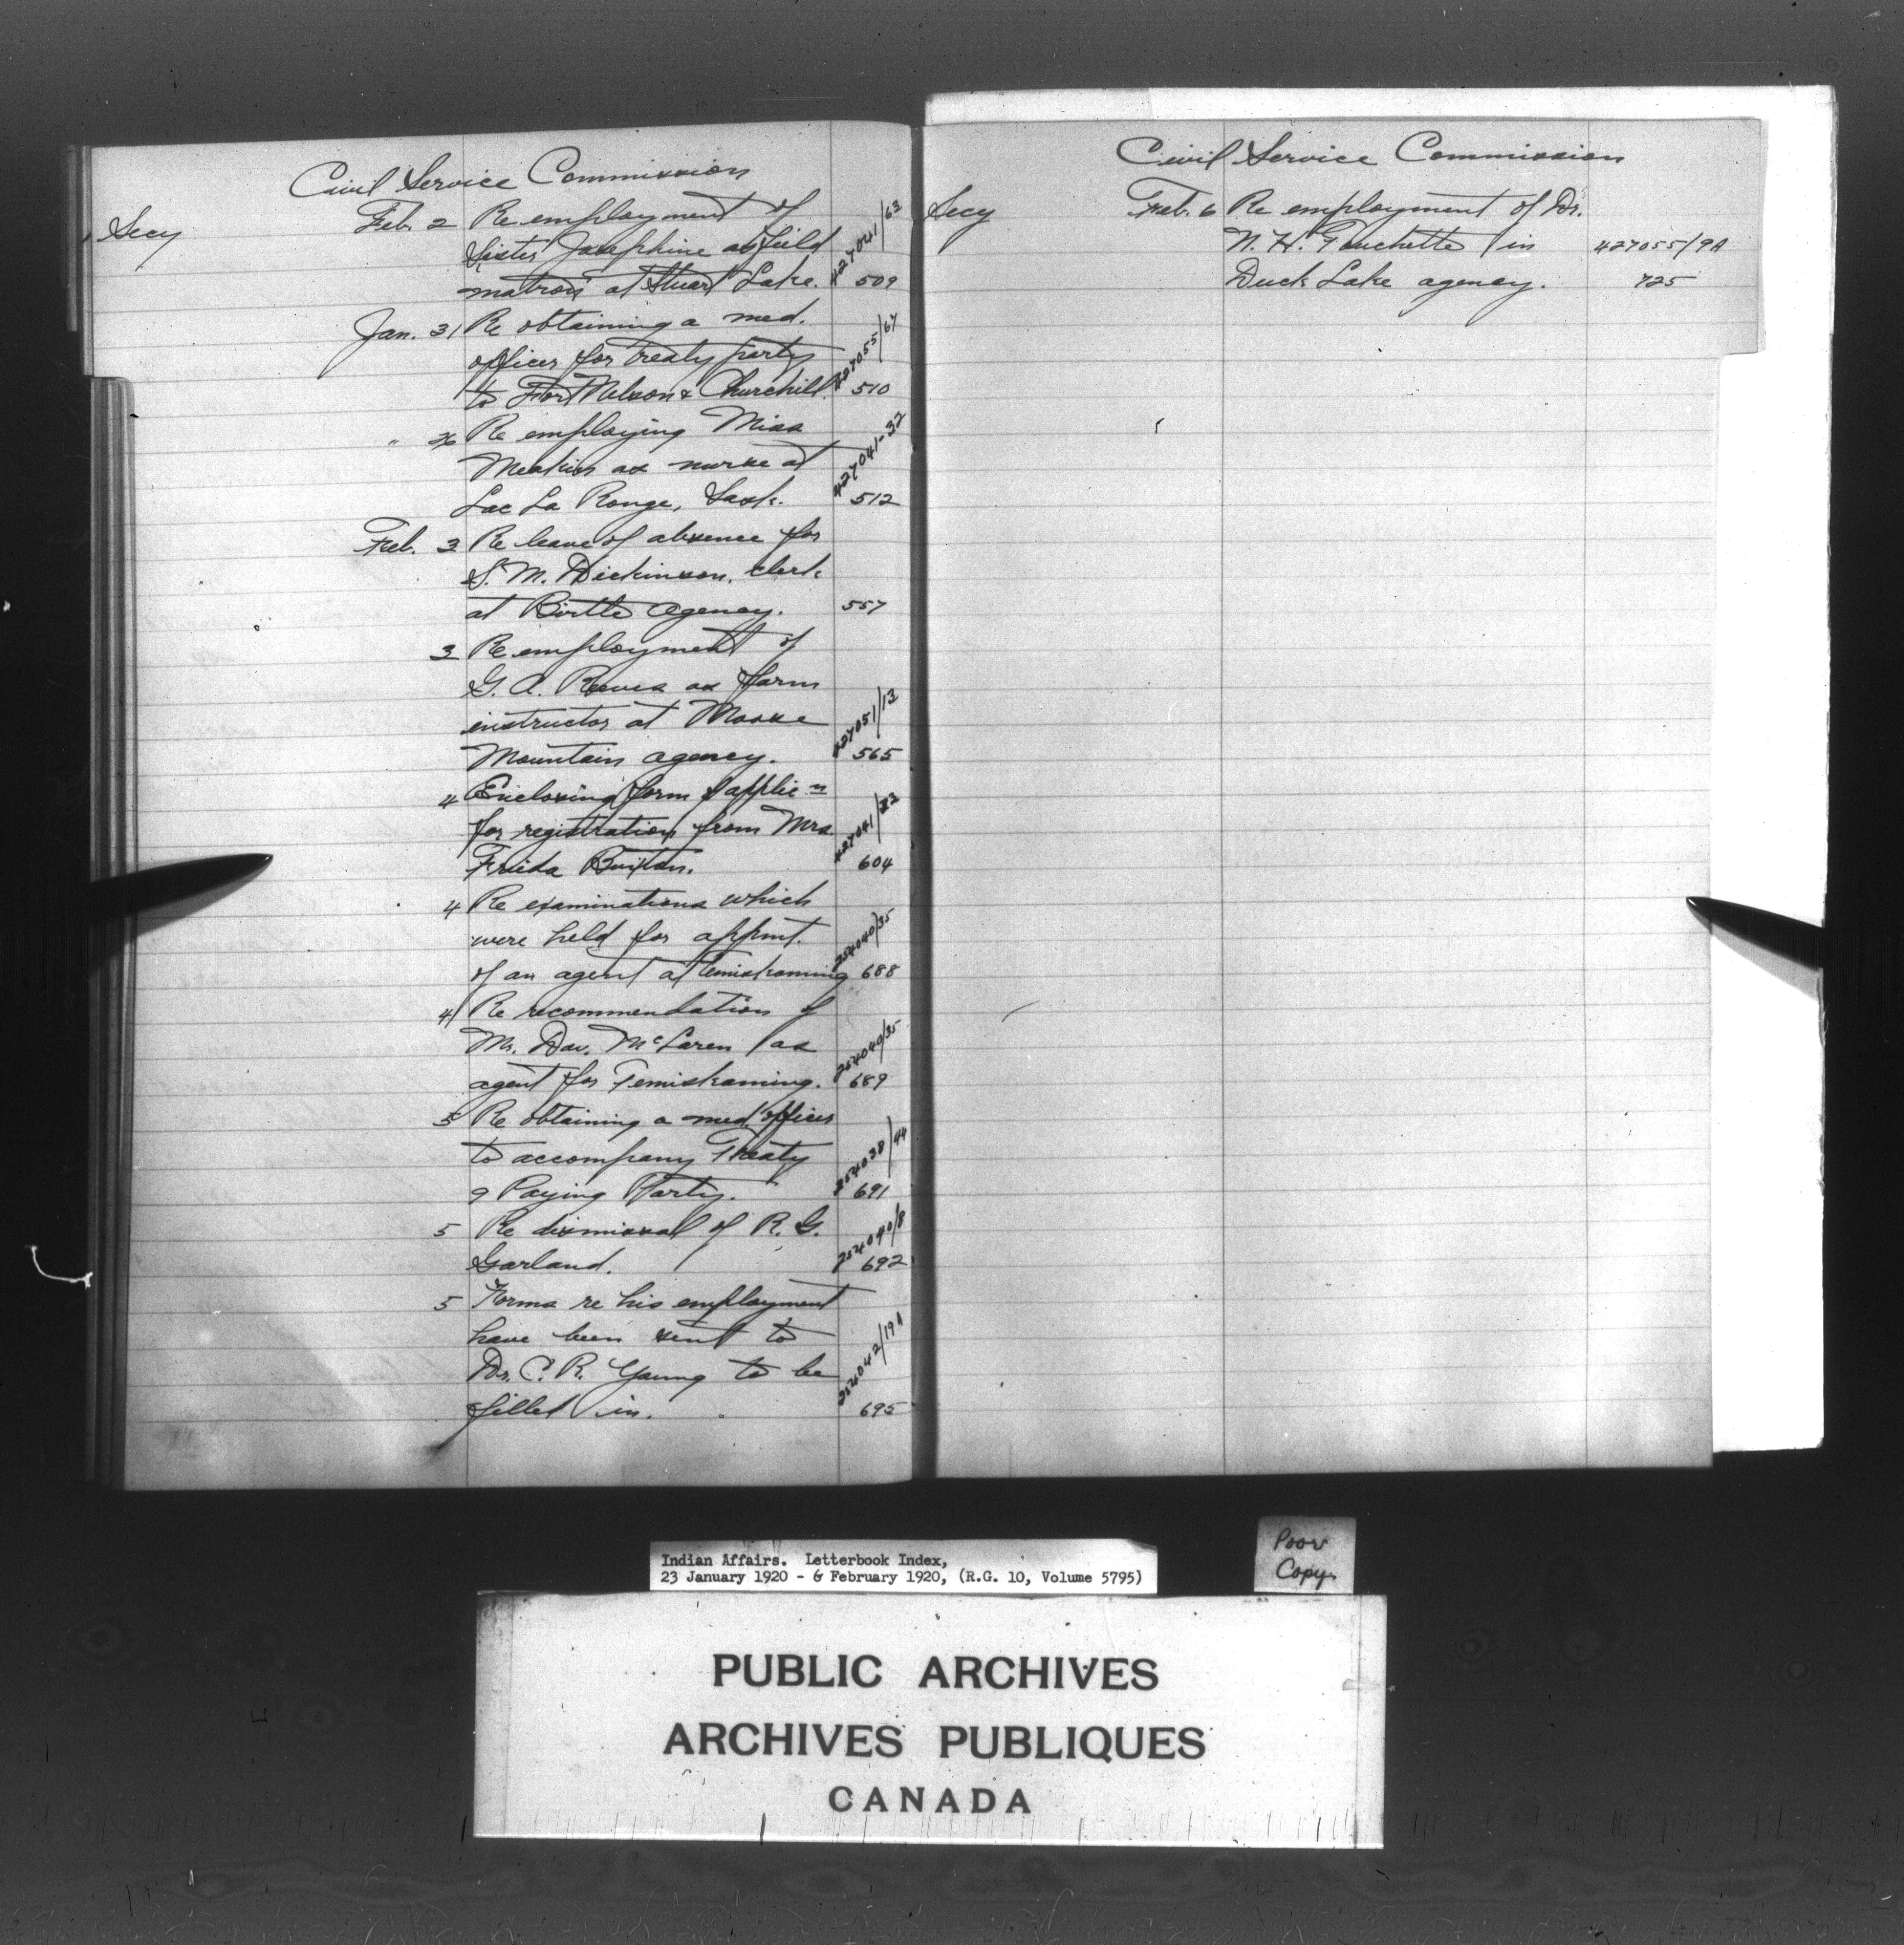 Civil Service Commission
Secy Feb. 2 Re employment of
Sister Josephine as field 427041/63
matron at Stuart Lake. 509
Jan. 31 Re obtaining a med.
officer for treaty party 427055/67
to Fort Nelson & Churchill. 510
" Re employing Miss
Meakin as nurse at 427041-32
Lac La Ronge, Sask. 512
Feb. 3 Re leave of absence for
S. M. Dickinson, clerk
at Birtle agency. 557
3 Re employment of
G. A. Reeves as farm
instructor at Moose 427051/13
Mountain agency. 565
4 Enclosing form of applic n
for registration from Mrs 427041/
Frieda Buxton. 604
4 Re examinations which
were held for appmt. 254040/35
of an agent at Temiskaming 688
4 Re recommendation of
Mr. Dav. McLaren as 254040/35
agent for Temiskaming. 689
5 Re obtaining a med. officer
to accompany Treaty 254038/44
9 Paying Party. 691
5 Re dismissal of R. G. 254040/8
Garland. 692
5 Forms re his employment
have been sent to
Dr. C. R. Young to be 254042/19A
filled in. 695
Civil Service Commission
Secy Feb. 6 Re employment of Dr.
N. H. Touchette in 427055/9A
Duck Lake agency. 725
Indian Affairs. Letterbook Index,
23 January 1920 - 6 February 1920, (R.G. 10, Volume 5795)
Poor
Copy
PUBLIC ARCHIVES
ARCHIVES PUBLIQUES
CANADA